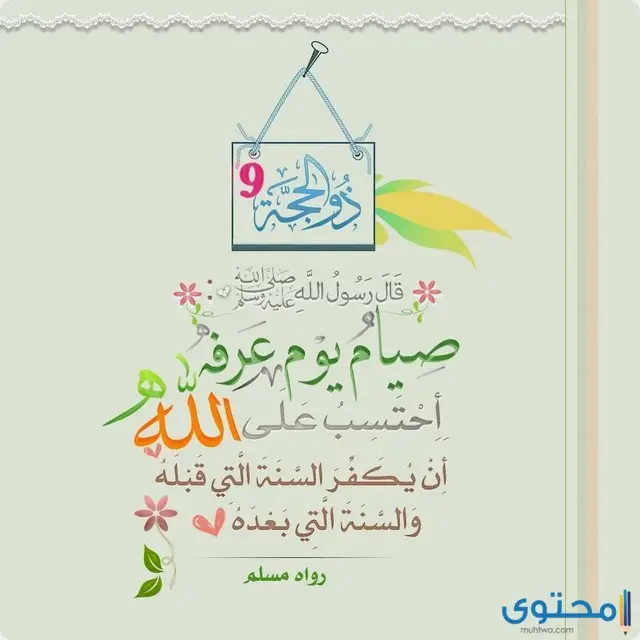 9 ذُو الحِجَّة
قَالَ رَسُولُ اللَّهِ صَلَّى اللَّهُ عَلَيْهِ وَسَلَّمَ :
صِيَامُ يَوْمِ عَرَفَةُ
أَحْتَسِبُ عَلَى اللَّهِ
أَنْ يُكَفِّرَ السَّنَةَ الَّتِي قَبْلَهُ
وَالسَّنَةَ الَّتِي بَعْدَهُ
رواه مسلم
محتوى
muhtwa.com